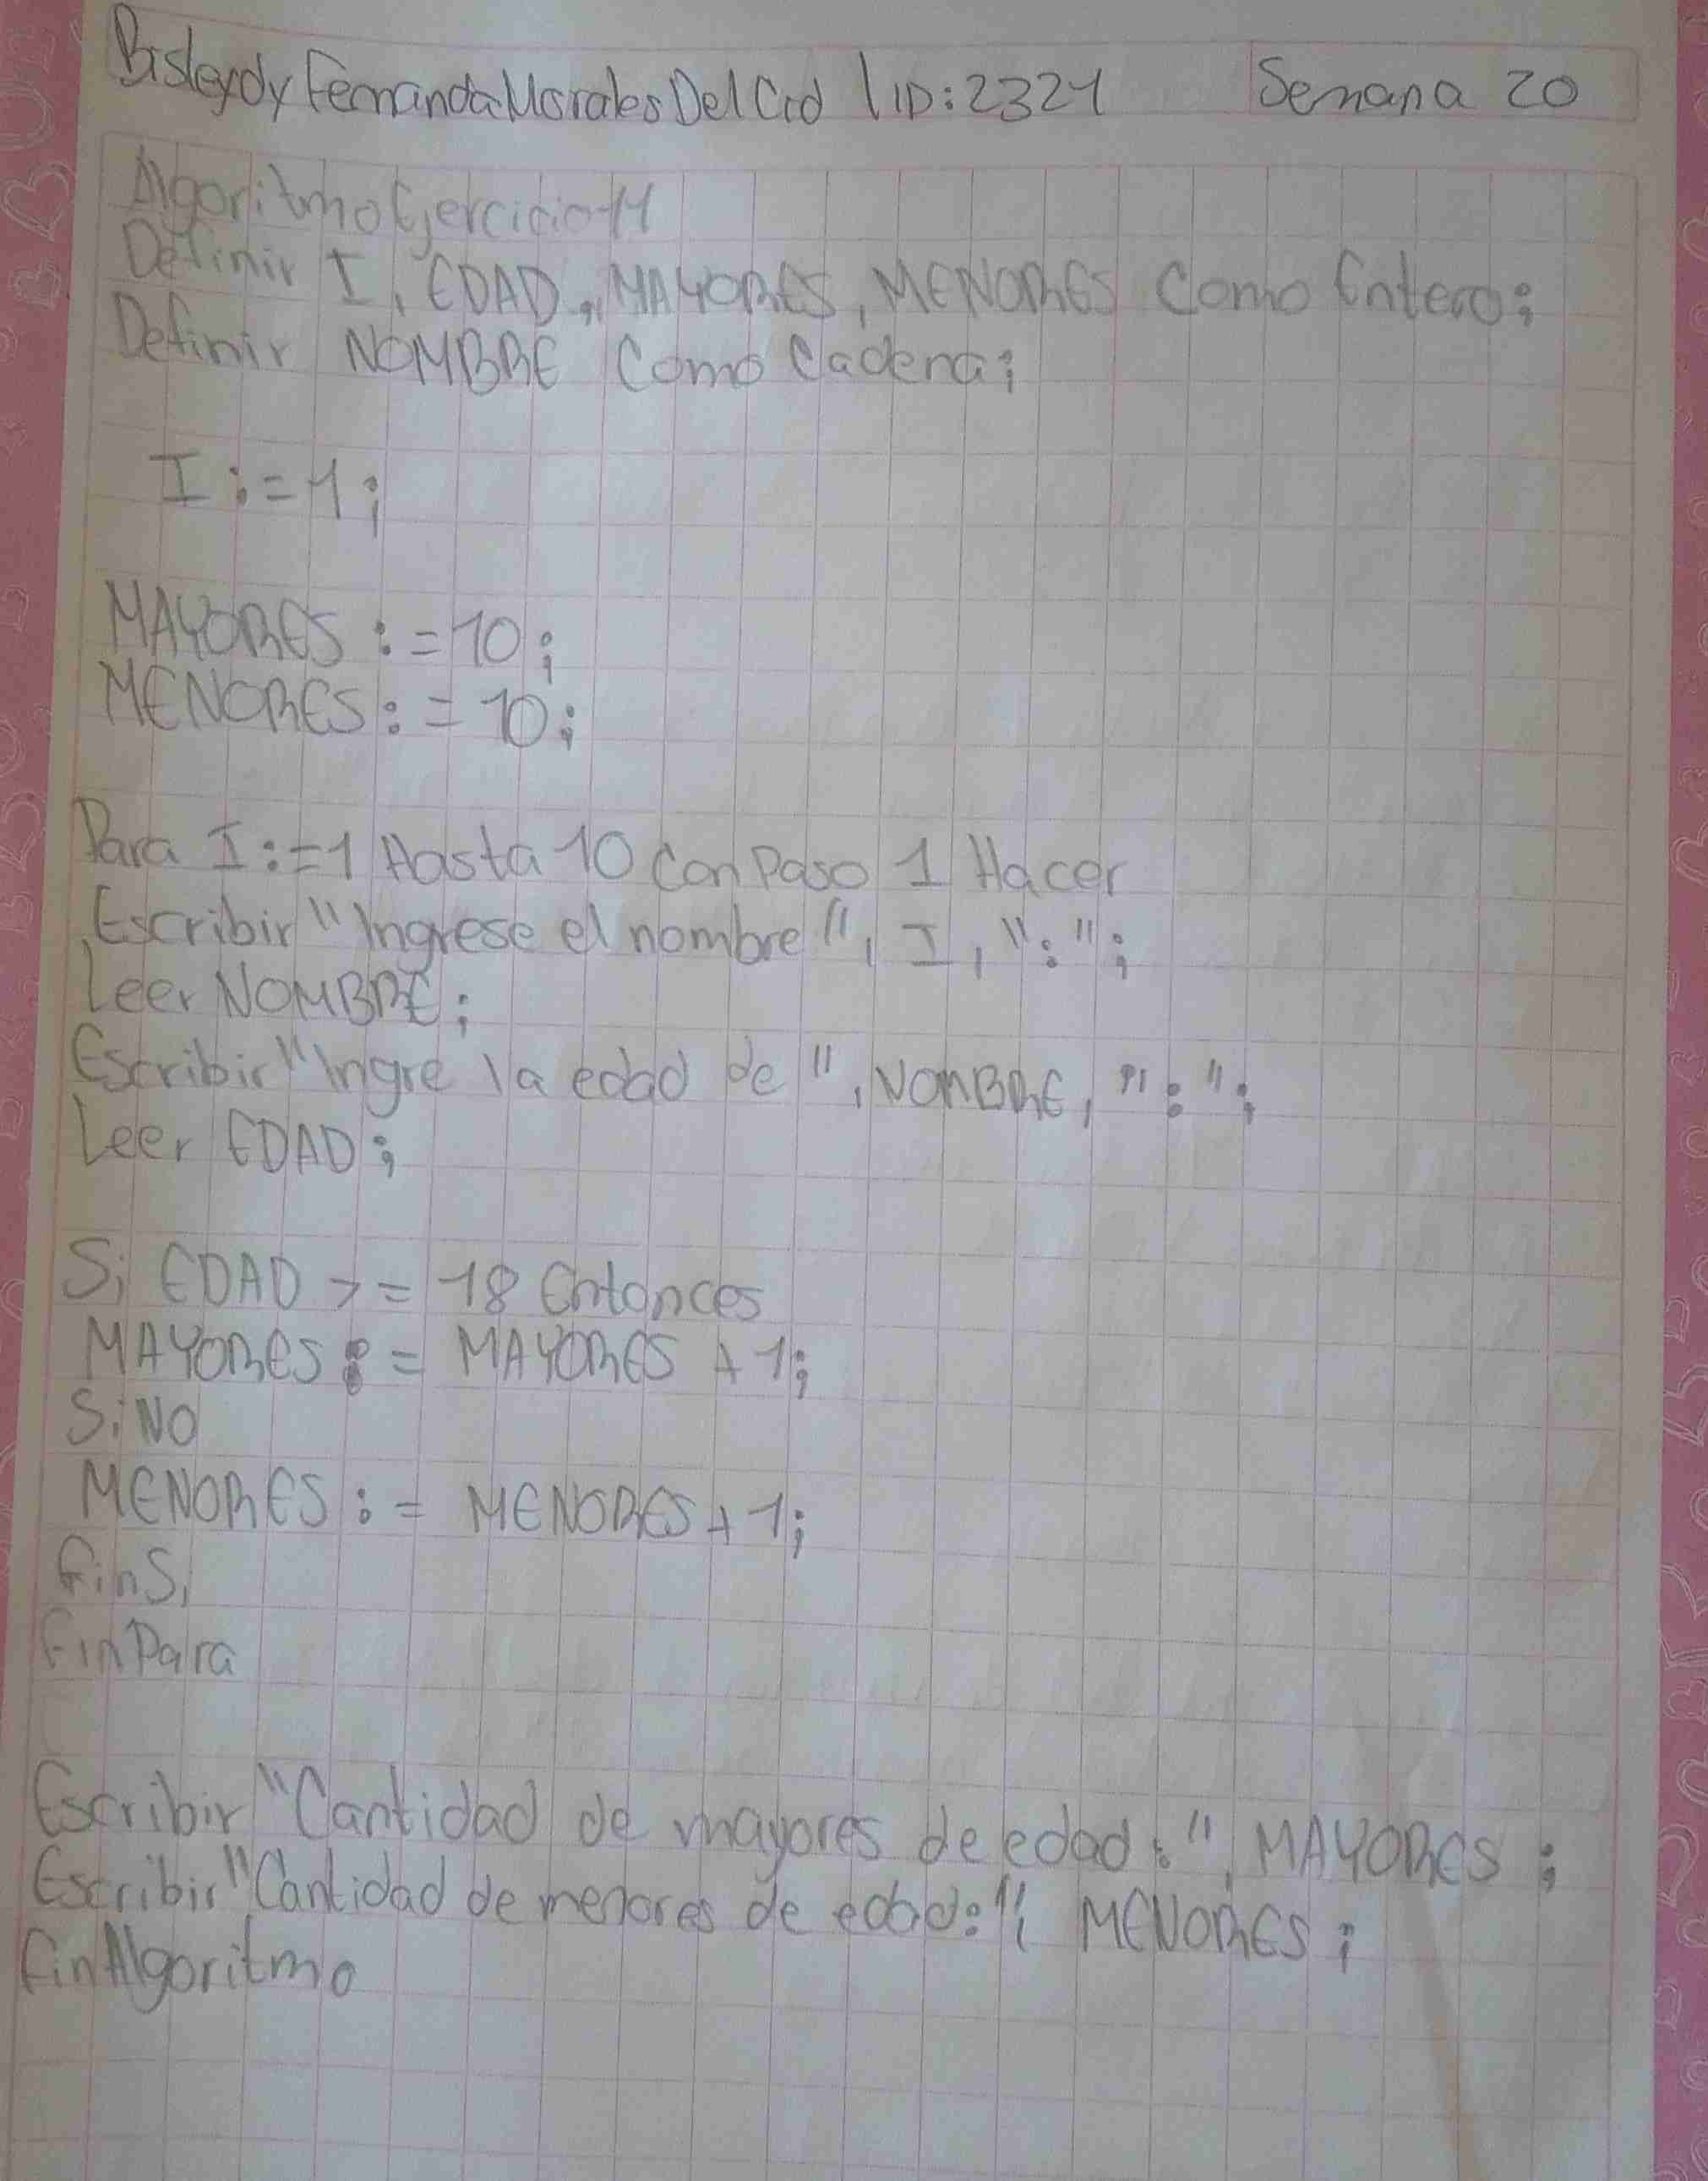 Bisleydy Fernanda Morales Del Cid | ID: 2321 Semana 20
Algoritmo Ejercicio 11
Definir I, EDAD, MAYORES, MENORES Como Entero;
Definir NOMBRE Como Cadena;
I := 1;
MAYORES := 10;
MENORES := 10;
Para I := 1 Hasta 10 Con Paso 1 Hacer
Escribir "Ingrese el nombre", I, ":";
Leer NOMBRE;
Escribir "Ingre la edad de ", NOMBRE, ":";
Leer EDAD;
Si EDAD >= 18 Entonces
MAYORES := MAYORES + 1;
SiNo
MENORES := MENORES + 1;
FinSi
FinPara
Escribir "Cantidad de mayores de edad:", MAYORES;
Escribir "Cantidad de menores de edad:", MENORES;
FinAlgoritmo